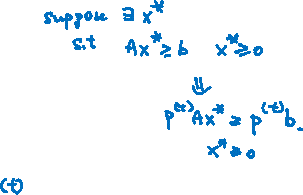 suppose ∃ x*
s.t Ax* ≥ b x* ≥ 0
⇓
p^(t) A x* ≥ p^(t) b.
x* ≥ 0
(t)